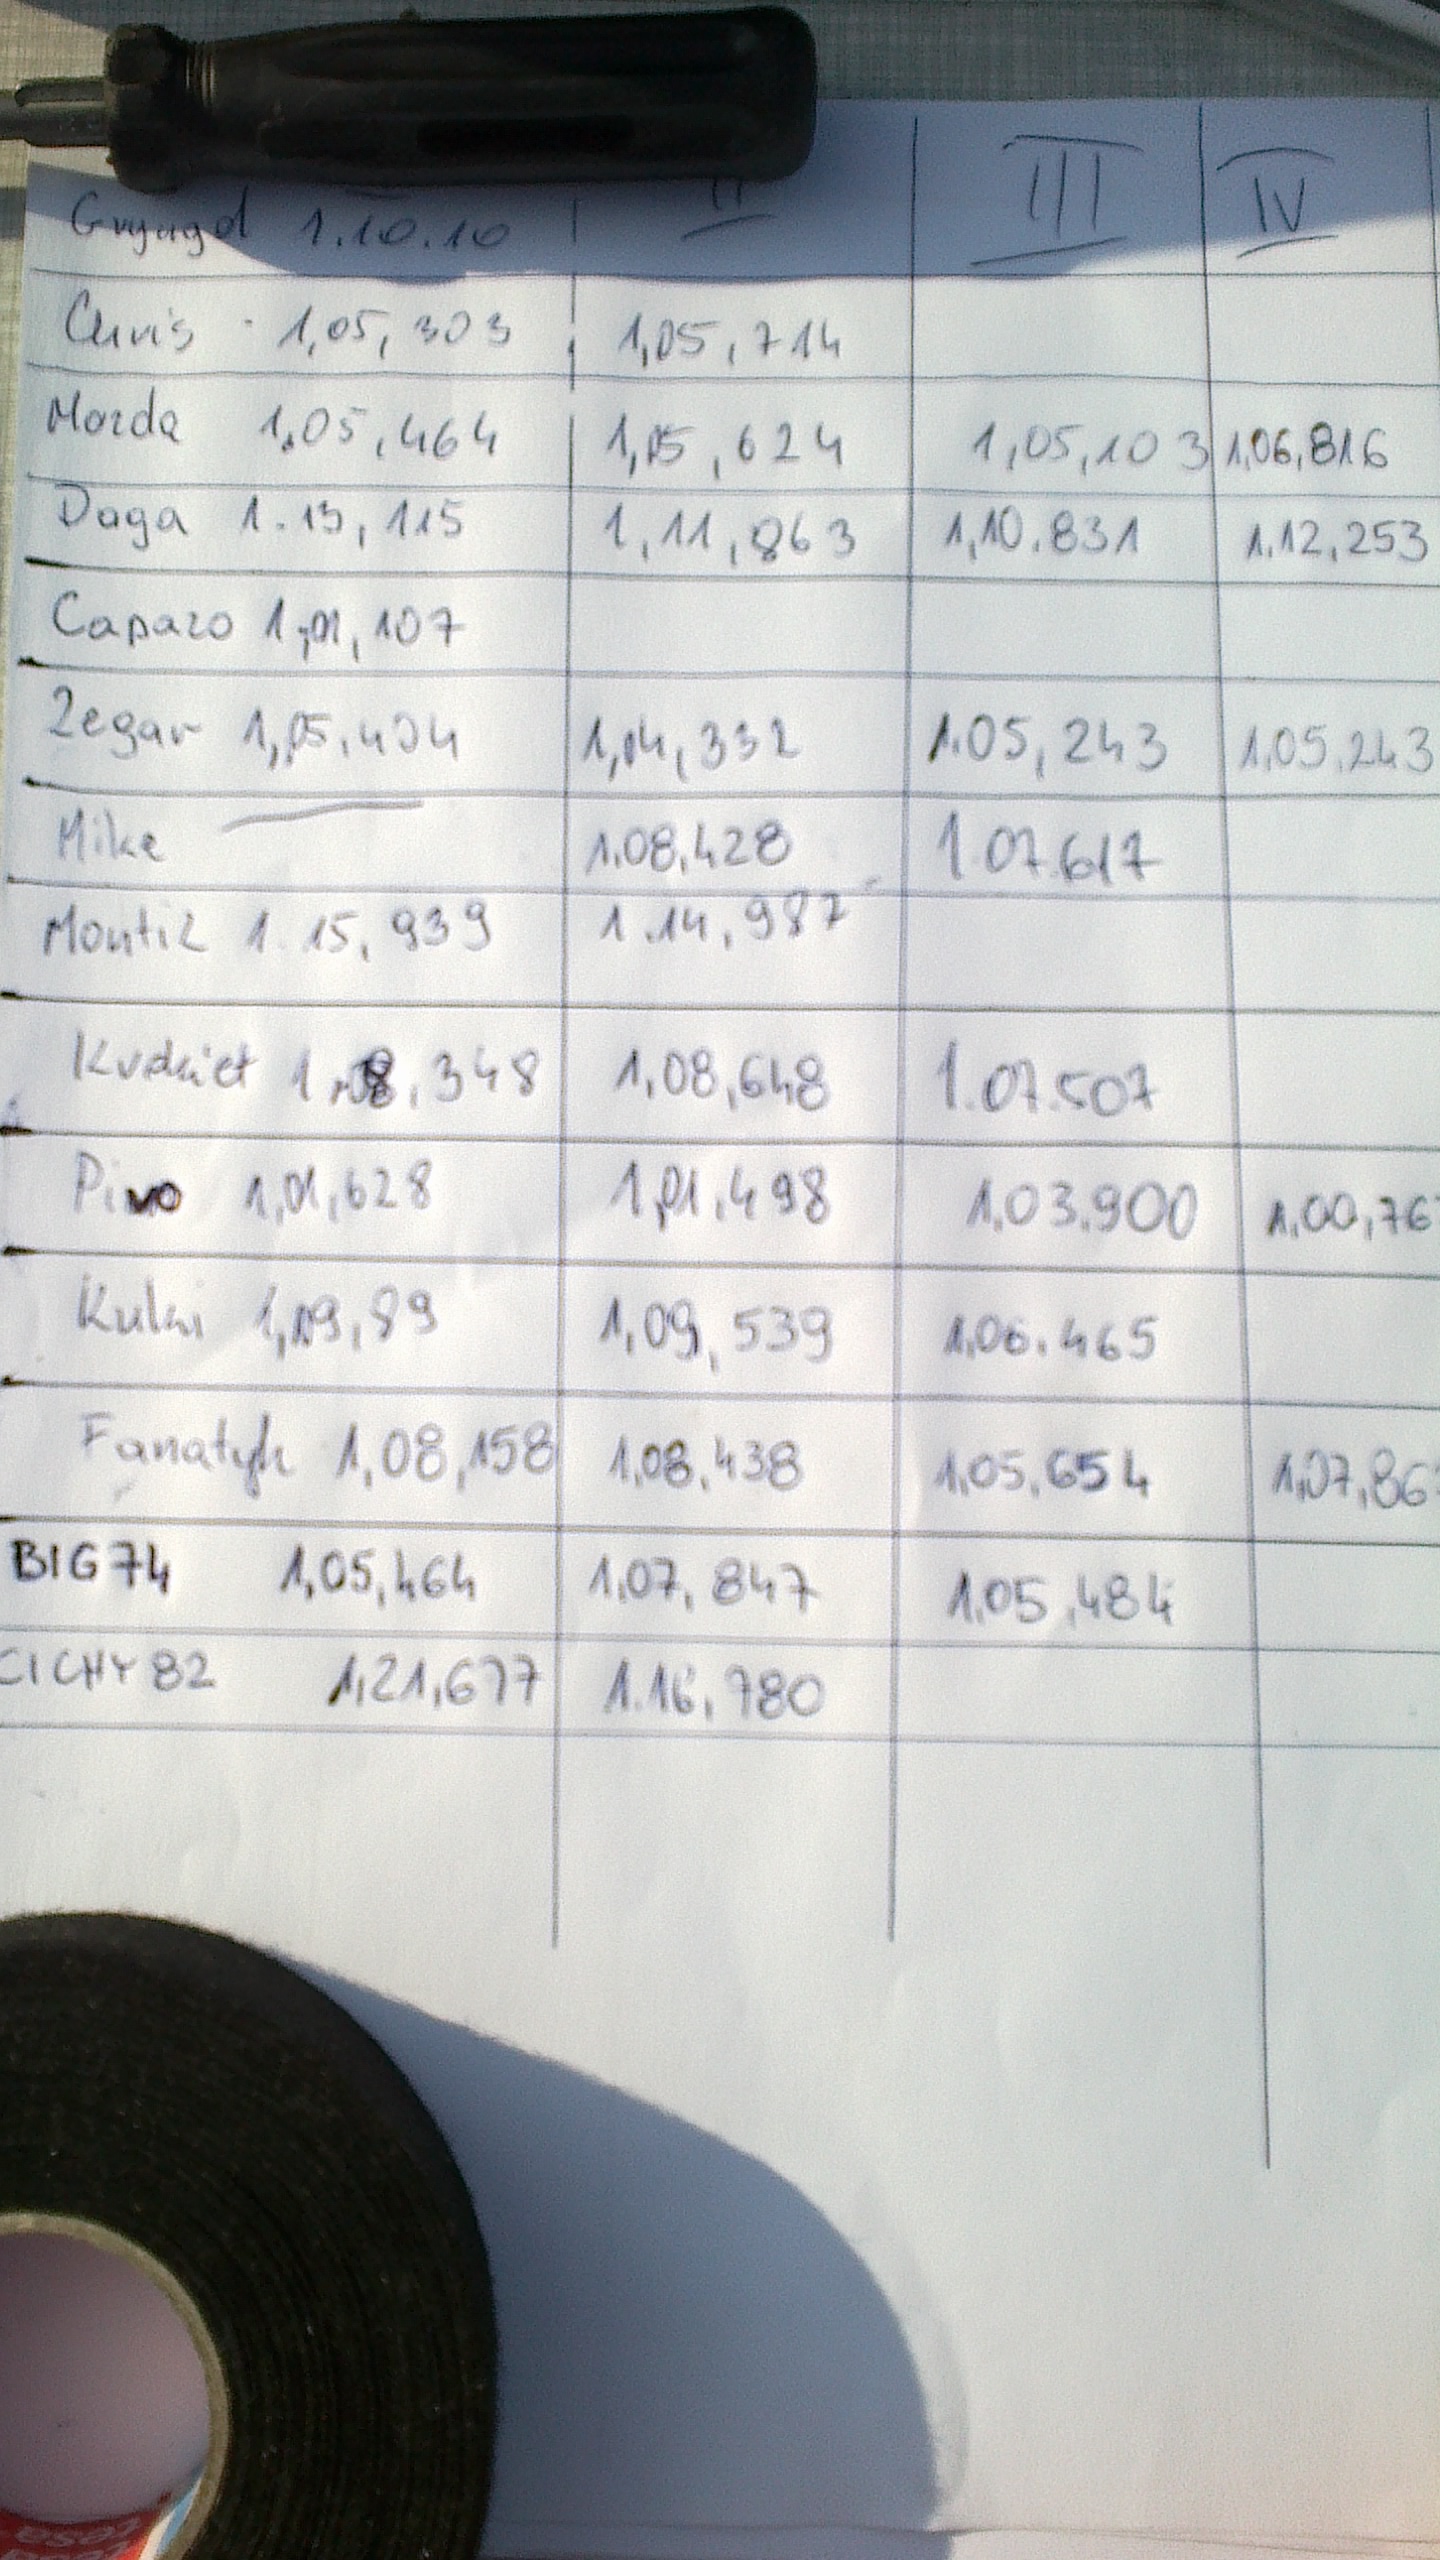 Gryngol 1.10.10 II III IV
Chris - 1,05,303 1,05,714
Morda 1.05,464 1,05,624 1,05,103 1,06,816
Daga 1.13,115 1,11,863 1,10.831 1.12,253
Caparo 1,01,107
Zegar 1,05,404 1,04,332 1.05,243 1,05,243
Mike 1.08,428 1.07.617
Montil 1.15,939 1.14,987
1,08,348 1,08,648 1.07.507
Pivo 1,01,628 1,01,498 1.03.900 1.00,76
1,09,89 1,09,539 1,06.465
Fanatyk 1,08,158 1,08,438 1,05,654 1,07,86
BIG74 1,05,464 1,07,847 1,05,484
CICHY82 1,21,677 1.16,780
tesa